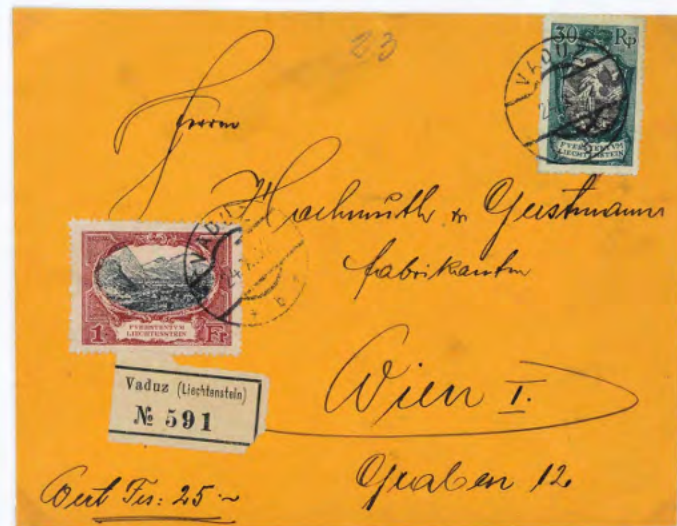 23
30 Rp
VADUZ
FVERSTENTVM
LIECHTENSTEIN
Herrn
Hochmuth & Gerstmann
Fabrikanten
VADUZ
1 Fr
FVERSTENTVM
LIECHTENSTEIN
Vaduz (Liechtenstein)
№ 591
Wien I.
Graben 12.
Wert Frs: 25.-